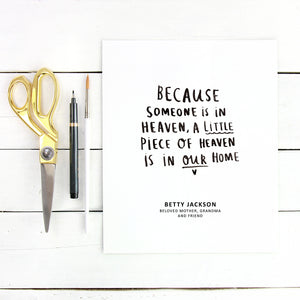 BECAUSE
SOMEONE IS IN
HEAVEN, A LITTLE
PIECE OF HEAVEN
IS IN OUR HOME
BETTY JACKSON
BELOVED MOTHER, GRANDMA
AND FRIEND